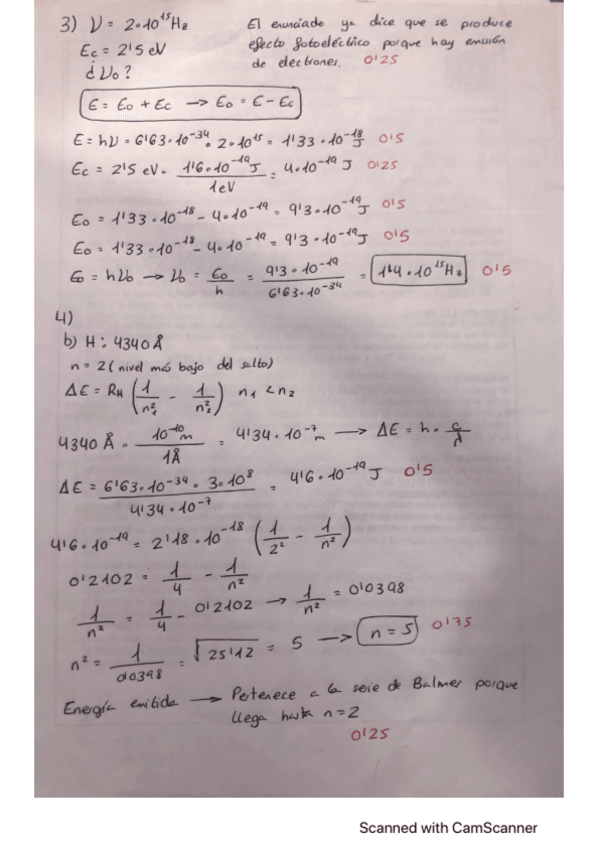 3) ν = 2·10¹⁵ Hz
Ec = 2'5 eV
¿ν₀?
El enunciado ya dice que se produce
efecto fotoeléctico porque hay emisión
de electrones. 0'25
E = E₀ + Ec → E₀ = E - Ec
E = hν = 6'63·10⁻³⁴ · 2·10¹⁵ = 1'33·10⁻¹⁸ J 0'5
Ec = 2'5 eV · 1'6·10⁻¹⁹ J / 1 eV = 4·10⁻¹⁹ J 0'25
E₀ = 1'33·10⁻¹⁸ - 4·10⁻¹⁹ = 9'3·10⁻¹⁹ J 0'5
E₀ = 1'33·10⁻¹⁸ - 4·10⁻¹⁹ = 9'3·10⁻¹⁹ J 0'5
E₀ = hν₀ → ν₀ = E₀ / h = 9'3·10⁻¹⁹ / 6'63·10⁻³⁴ = 1'4·10¹⁵ Hz 0'5
4)
b) H: 4340 Å
n = 2 (nivel más bajo del salto)
ΔE = R_H (1/n₁² - 1/n₂²) n₁ < n₂
4340 Å · 10⁻¹⁰ m / 1 Å = 4'34·10⁻⁷ m → ΔE = h · c/λ
ΔE = 6'63·10⁻³⁴ · 3·10⁸ / 4'34·10⁻⁷ = 4'6·10⁻¹⁹ J 0'5
4'6·10⁻¹⁹ = 2'18·10⁻¹⁸ (1/2² - 1/n²)
0'2102 = 1/4 - 1/n²
1/n² = 1/4 - 0'2102 → 1/n² = 0'0398
n² = 1/0'0398 = √25'12 = 5 → n = 5 0'75
Energía emitida → Pertenece a la serie de Balmer porque
llega hasta n=2
0'25
Scanned with CamScanner